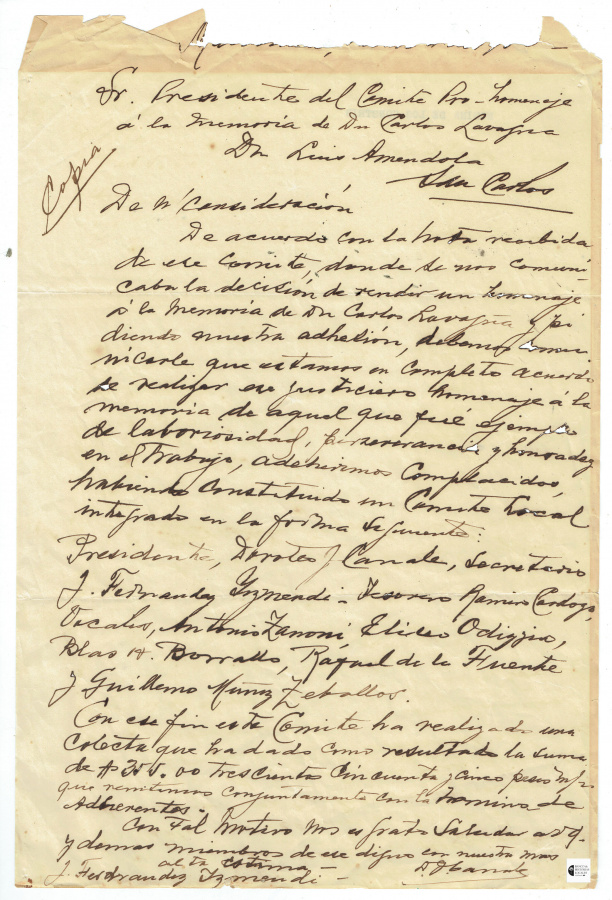 Sr. Presidente del Comite Pro-homenaje
á la Memoria de Dn Carlos Lavagna
Dn Luis Amendola
San Carlos
Copia
De n/ Consideración
De acuerdo con la nota recibida
de ese Comite, donde se nos comuni
caba la decisión de rendir un homenaje
á la Memoria de Dn Carlos Lavagna y pi
diendo nuestra adhesión, debemos
nicarle que estamos en completo acuerdo
se realizar ese justiciero homenaje á la
memoria de aquel que fué ejemplo
de laboriosidad, perseverancia y honradez
en el trabajo, adherimos Complacidos,
habiendo Constituido un Comite Local
integrado en la forma siguiente:
Presidente, Doroteo J Canale, Secretario
J. Fernandez Yzmendi - Tesorero Ramiro Cardozo,
Vocales, Antonio Zanoni Eliceo
Blas H. Borrallo, Rafael de la Fuente
y Guillermo Muñoz Zeballos.
Con ese fin este Comite ha realizado una
colecta que ha dado como resultado la suma
de trescientos cincuenta y cinco pesos m/n
que remitimos conjuntamente con la nomina de
Adherentes.
Con tal motivo nos es grato Saludar a
y demas miembros de ese digno en nuestra mas
alta estima -
J. Fernandez Yzmendi - D J Canale